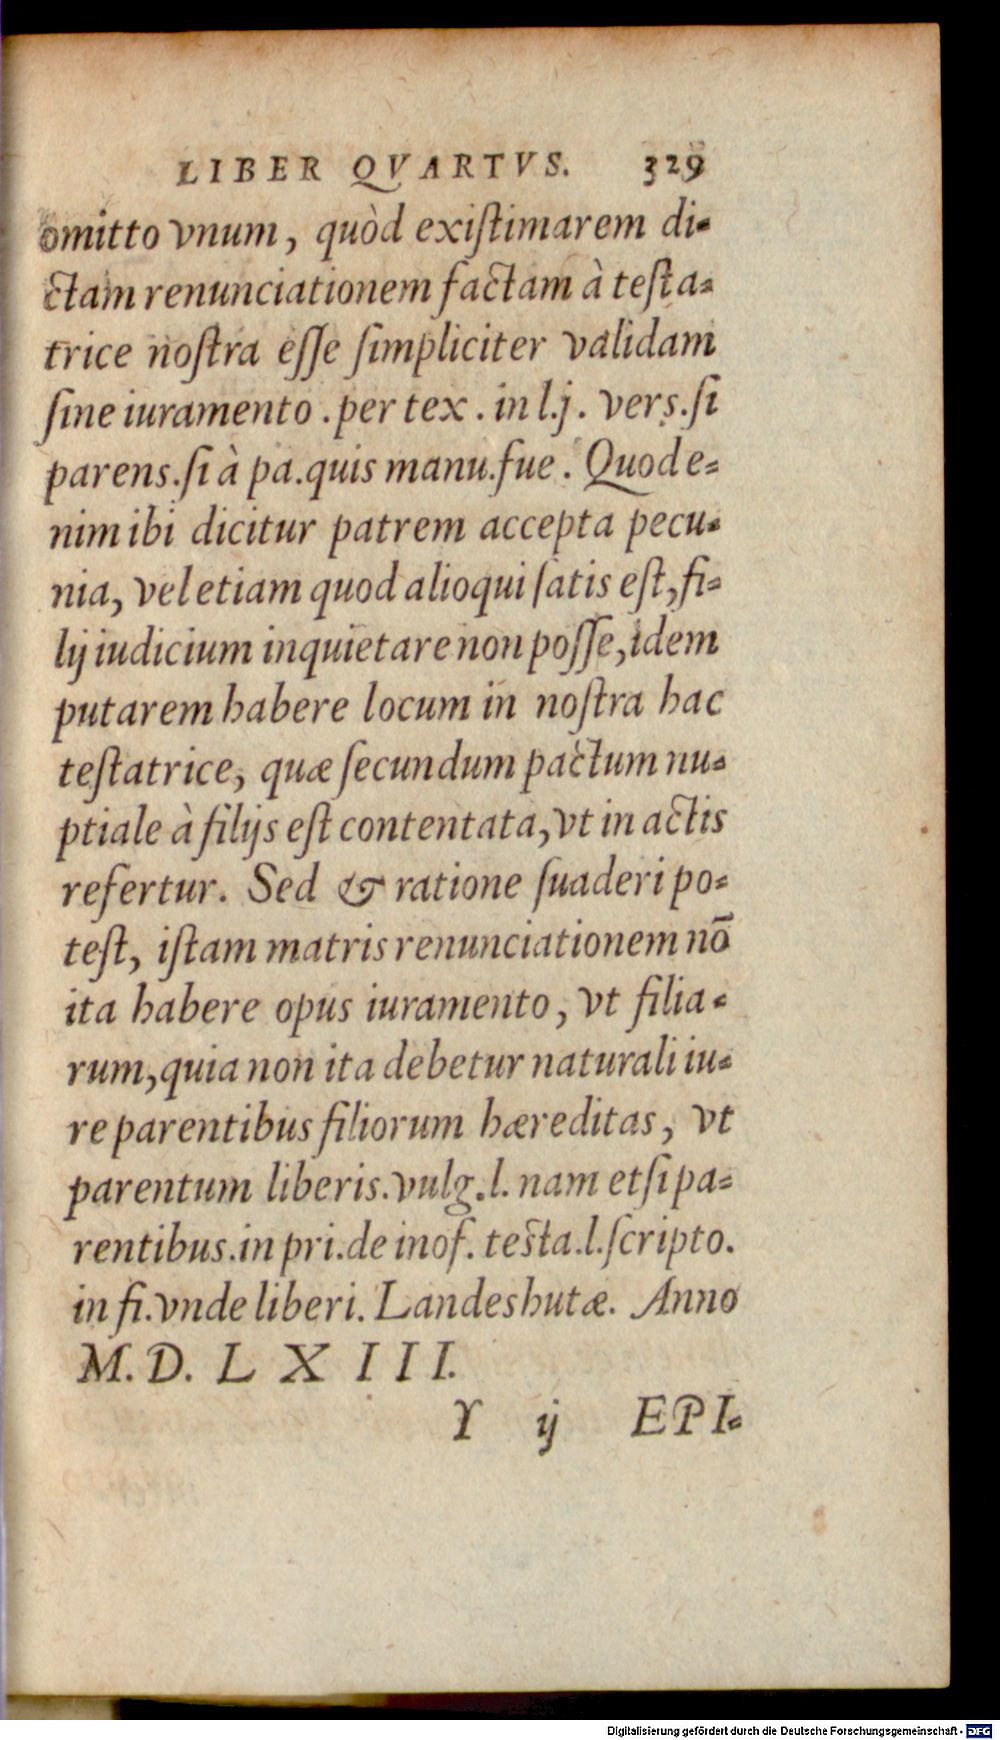 LIBER QVARTVS. 329
omitto vnum, quòd exiſtimarem di-
ctam renunciationem factam à teſta-
trice noſtra eſſe ſimpliciter validam
ſine iuramento . per tex . in l.j . verſ.ſi
parens.ſi à pa.quis manu.fue . Quod e-
nim ibi dicitur patrem accepta pecu-
nia, vel etiam quod alioqui ſatis eſt, fi-
lij iudicium inquietare non poſſe, idem
putarem habere locum in noſtra hac
teſtatrice, quæ ſecundum pactum nu-
ptiale à filijs eſt contentata, vt in actis
refertur. Sed & ratione ſuaderi po-
teſt, iſtam matris renunciationem nō
ita habere opus iuramento, vt filia-
rum, quia non ita debetur naturali iu-
re parentibus filiorum hæreditas, vt
parentum liberis.vulg.l. nam etſi pa-
rentibus.in pri.de inof. teſta.l.ſcripto.
in fi.vnde liberi. Landeshutæ. Anno
M. D. L X I I I.
Y ij EPI-
Digitalisierung gefördert durch die Deutsche Forschungsgemeinschaft - DFG